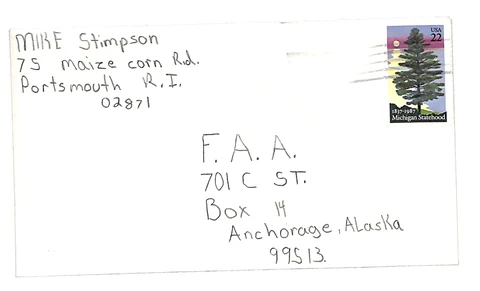 MIKE Stimpson
75 Maize corn Rd.
Portsmouth R.I.
02871
USA
22
1837-1987
Michigan Statehood
F. A. A.
701 C ST.
Box 14
Anchorage, ALaska
99513.